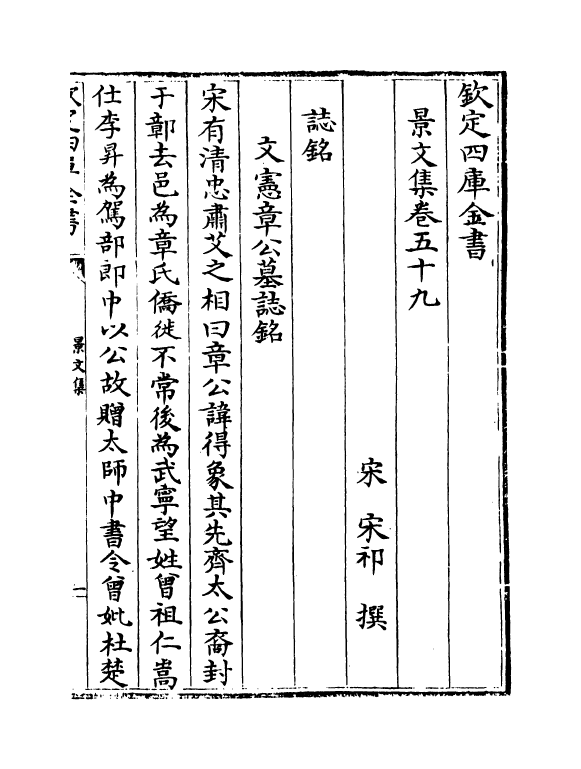 欽定四庫全書
景文集卷五十九
宋 宋祁 撰
誌銘
文憲章公墓誌銘
宋有清忠肅艾之相曰章公諱得象其先齊太公裔封
于鄣去邑為章氏僑徙不常後為武寧望姓曾祖仁嵩
仕李昇為駕部郎中以公故贈太師中書令曾妣杜楚
景文集
一